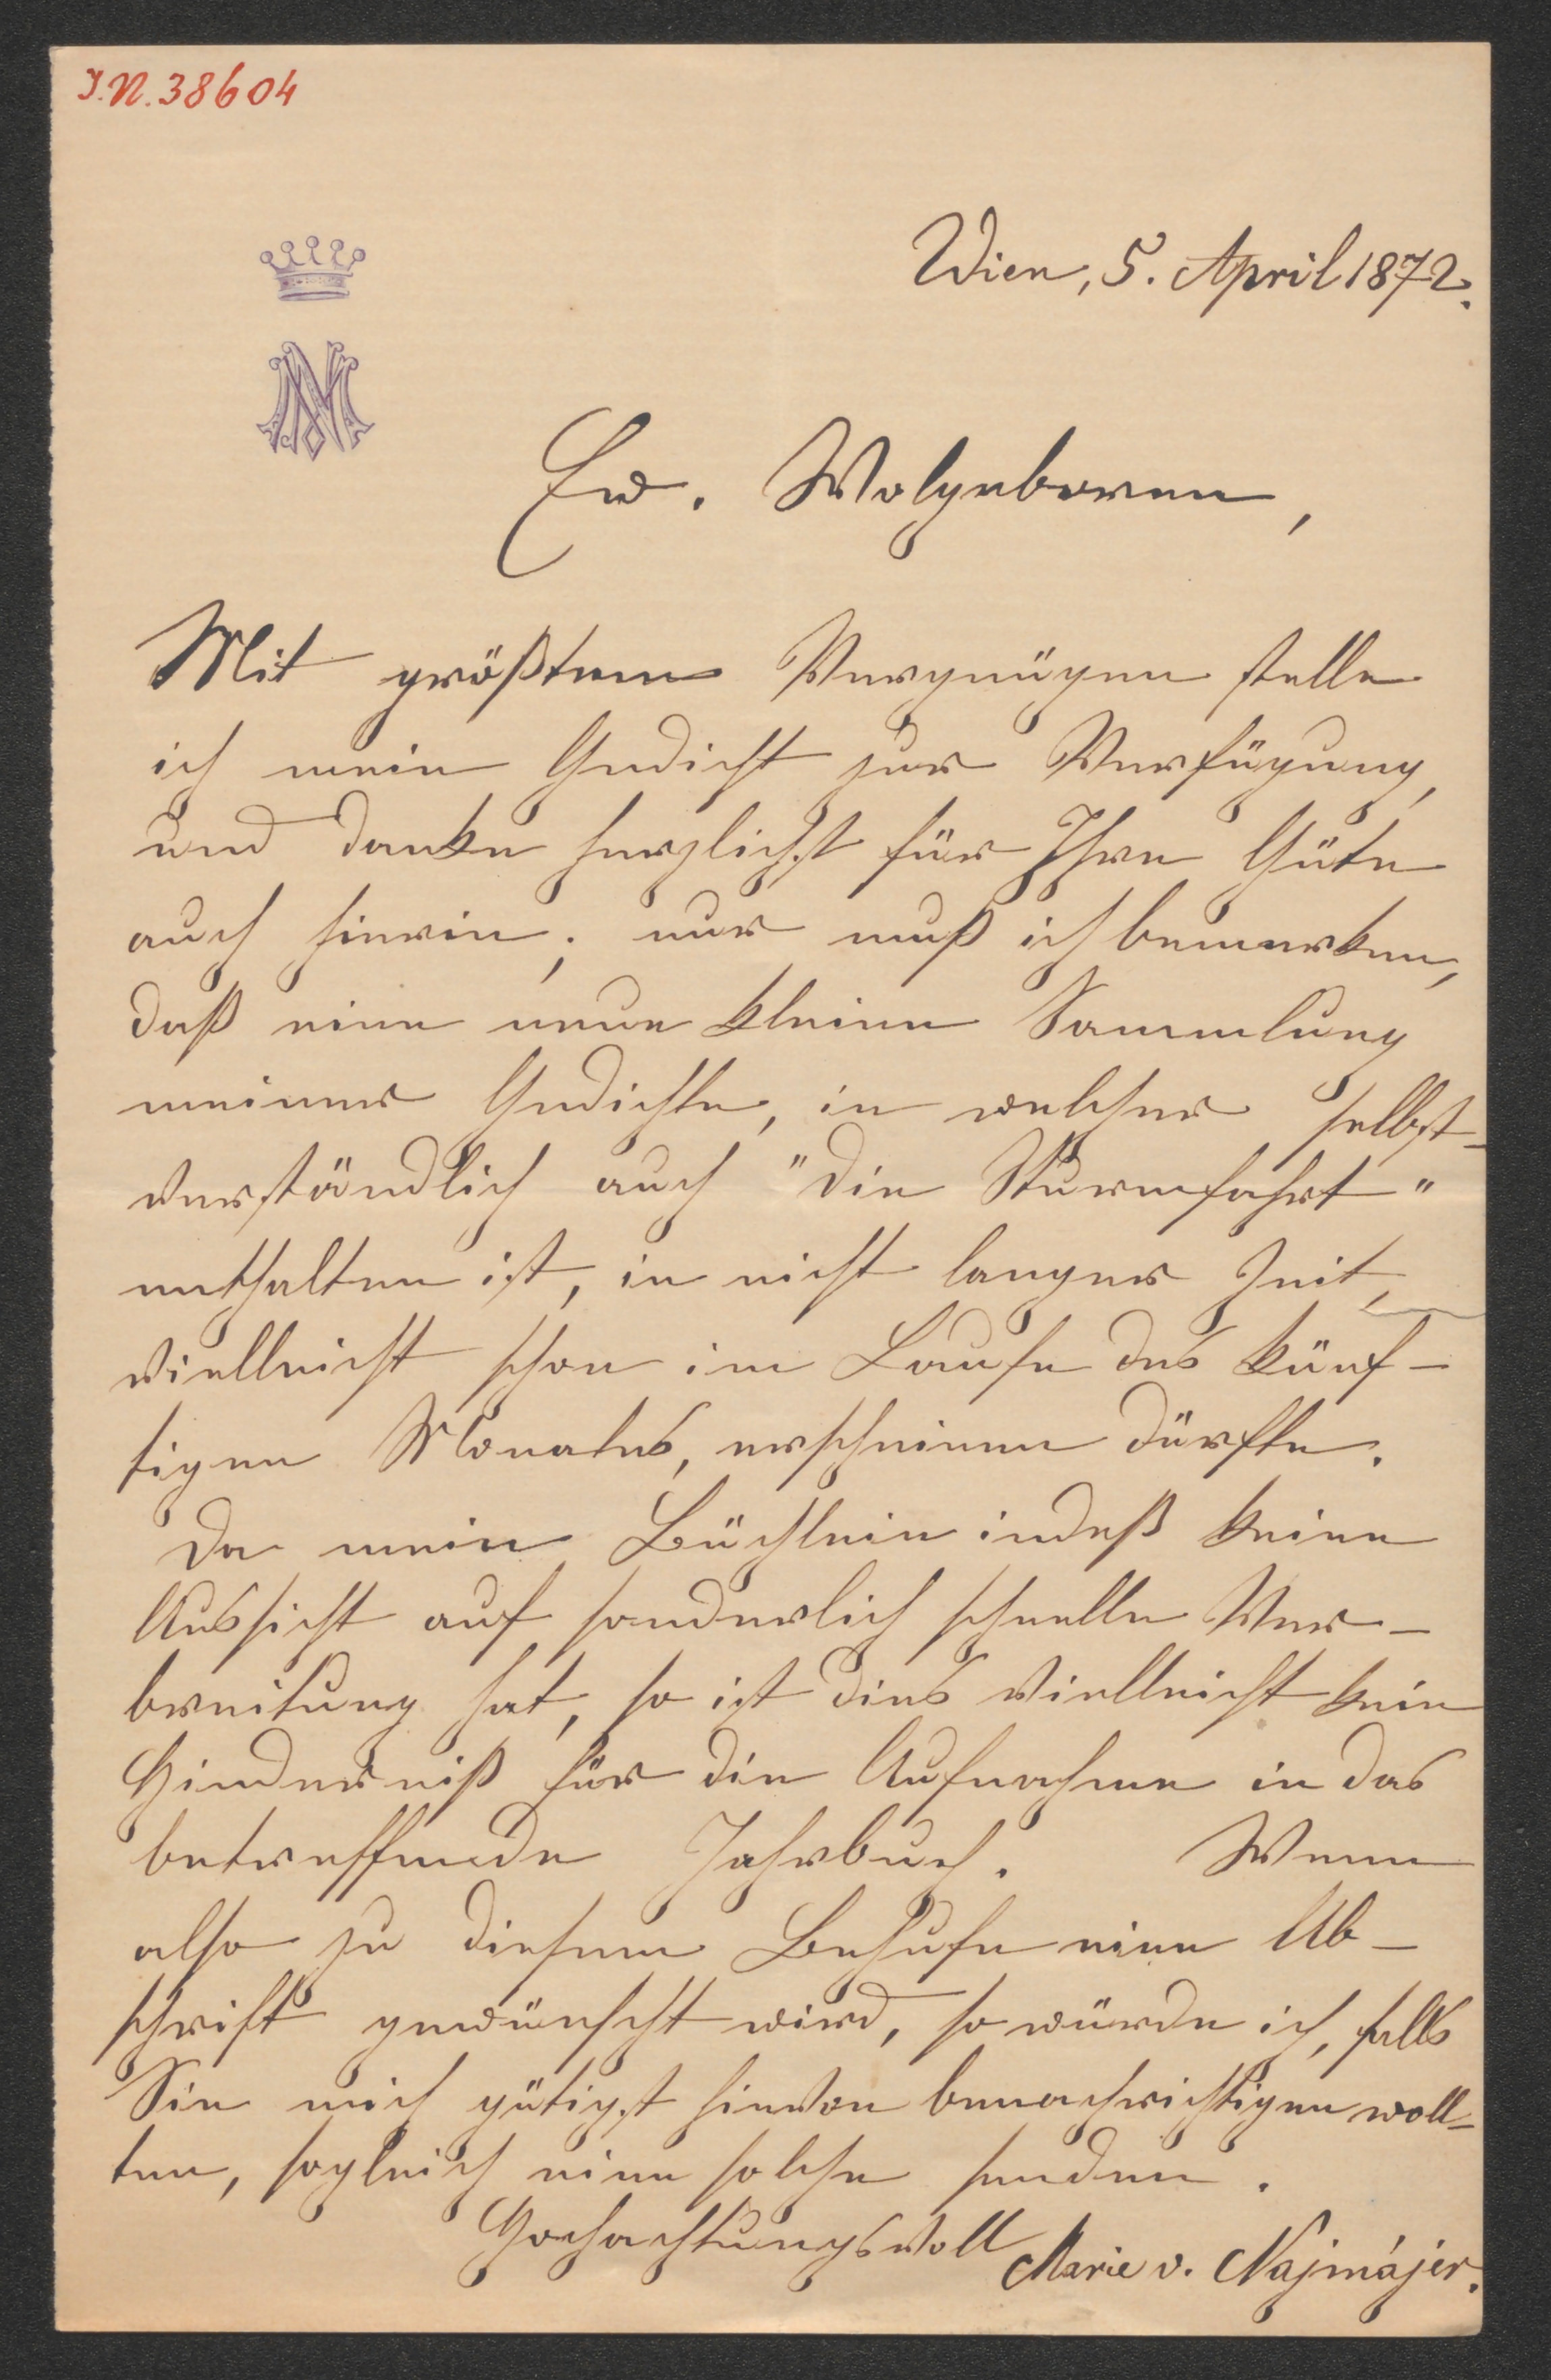 I.N. 38604
Wien, 5. April 1872.
MN
Ew. Wolgeboren,
Mit größtem Vergnügen stelle
ich mein Gedicht zur Verfügung,
und danke herzlichst für Ihre Güte
auch hierin; nur muß ich bemerken,
daß eine neue kleine Sammlung
meiner Gedichte, in welcher selbst-
verständlich auch "die Sturmfahrt"
enthalten ist, in nicht langer Zeit,
vielleicht schon im Laufe des künf-
tigen Monates, erscheinen dürfte.
Da mein Büchlein indeß keine
Aussicht auf sonderlich schnelle Ver-
breitung hat, so ist dies vielleicht kein
Hinderniß für die Aufnahme in das
betreffende Jahrbuch. Wenn
also zu diesem Behufe eine Ab-
schrift gewünscht wird, so würde ich, falls
Sie mich gütigst hievon benachrichtigen woll-
ten, sogleich eine solche senden.
Hochachtungsvoll Marie v. Najmájer.